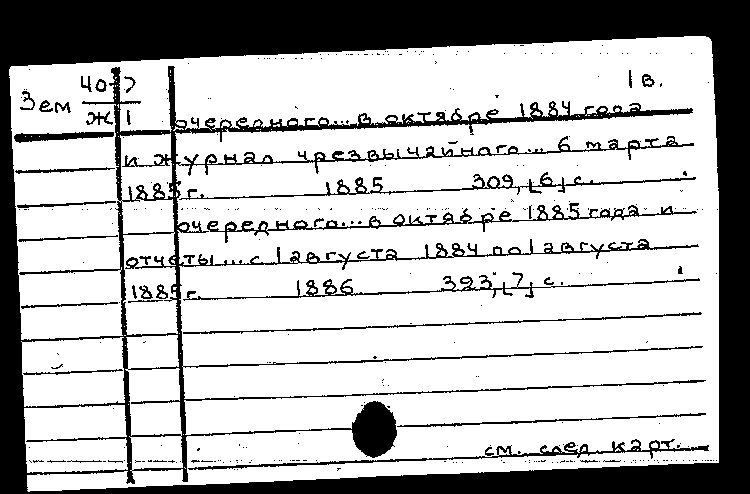 1 в.
Зем 40-7
ж 1
очередного... в октябре 1884 года
и журнал чрезвычайного... 6 марта
1885 г. 1885 309, [6] с.
очередного... в октябре 1885 года и
отчеты... с 1 августа 1884 по 1 августа
1885 г. 1886 393, [7] с.
см. след. карт.